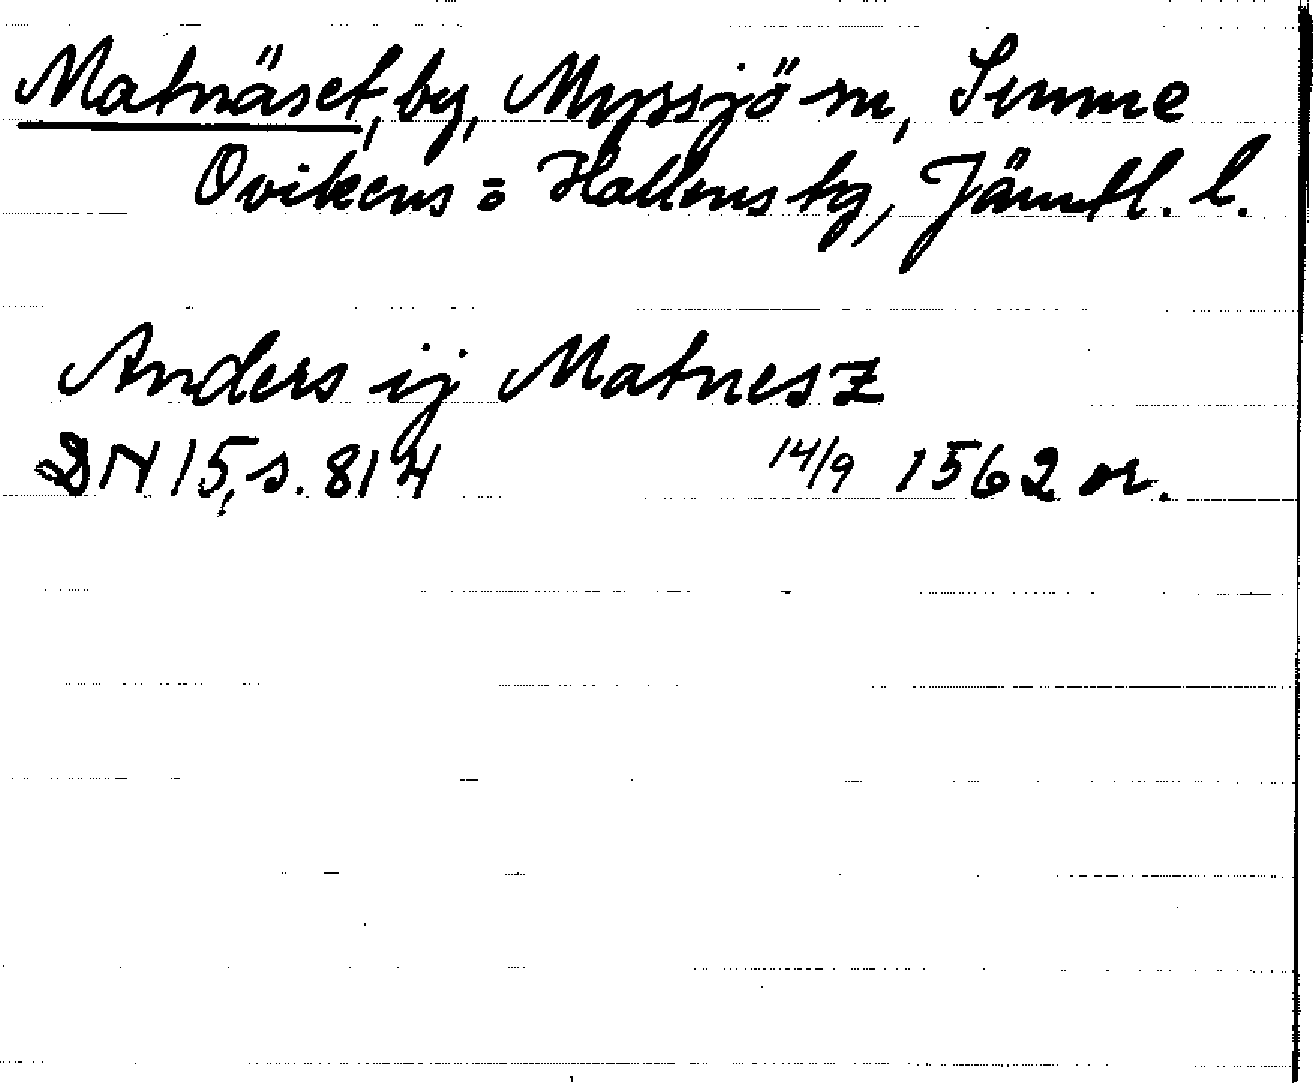 Matnäset, by, Myssjö sn, Sunne
Ovikens = Hallens tg, Jämtl. l.
Anders ij Matnesz
DN 15, s. 814 14/9 1562 or.